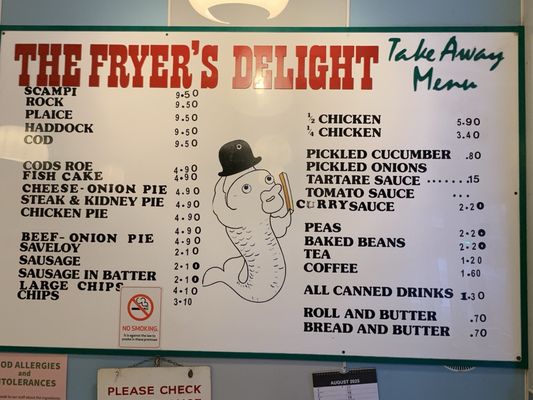 THE FRYER'S DELIGHT
Take Away
Menu
SCAMPI 9.50
ROCK 9.50
PLAICE 9.50
HADDOCK 9.50
COD 9.50
CODS ROE 4.90
FISH CAKE 4.90
CHEESE-ONION PIE 4.90
STEAK & KIDNEY PIE 4.90
CHICKEN PIE 4.90
BEEF-ONION PIE 4.90
SAVELOY 4.90
SAUSAGE 2.10
SAUSAGE IN BATTER 2.10
LARGE CHIPS 4.10
CHIPS 3.10
½ CHICKEN 5.90
¼ CHICKEN 3.40
PICKLED CUCUMBER .80
PICKLED ONIONS
TARTARE SAUCE .......15
TOMATO SAUCE ...
CURRY SAUCE 2.20
PEAS 2.20
BAKED BEANS 2.20
TEA 1.20
COFFEE 1.60
ALL CANNED DRINKS 1.30
ROLL AND BUTTER .70
BREAD AND BUTTER .70
NO SMOKING
It is against the law to
smoke in these premises
OD ALLERGIES
and
TOLERANCES
PLEASE CHECK
AUGUST 2025